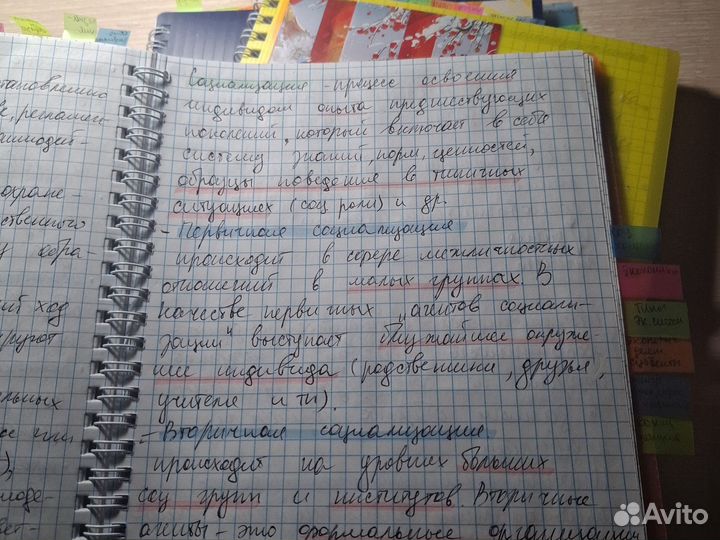 становлению
аимодей-
охране-
ственного
ий ход
ельных
Социализация - процесс освоения
индивидом опыта предшествующих
поколений, который включает в себя
систему знаний, норм, ценностей,
образцы поведения в типичных
ситуациях (соц роли) и др.
- Первичная социализация
происходит в сфере межличностных
отношений в малых группах. В
качестве первичных "агентов социали-
зации" выступает ближайшее окруже-
ние индивида (родственники, друзья,
учителя и тп).
- Вторичная социализация
происходит на уровнях больших
соц групп и институтов. Вторичные
агенты - это формальные организации
экономика
Avito